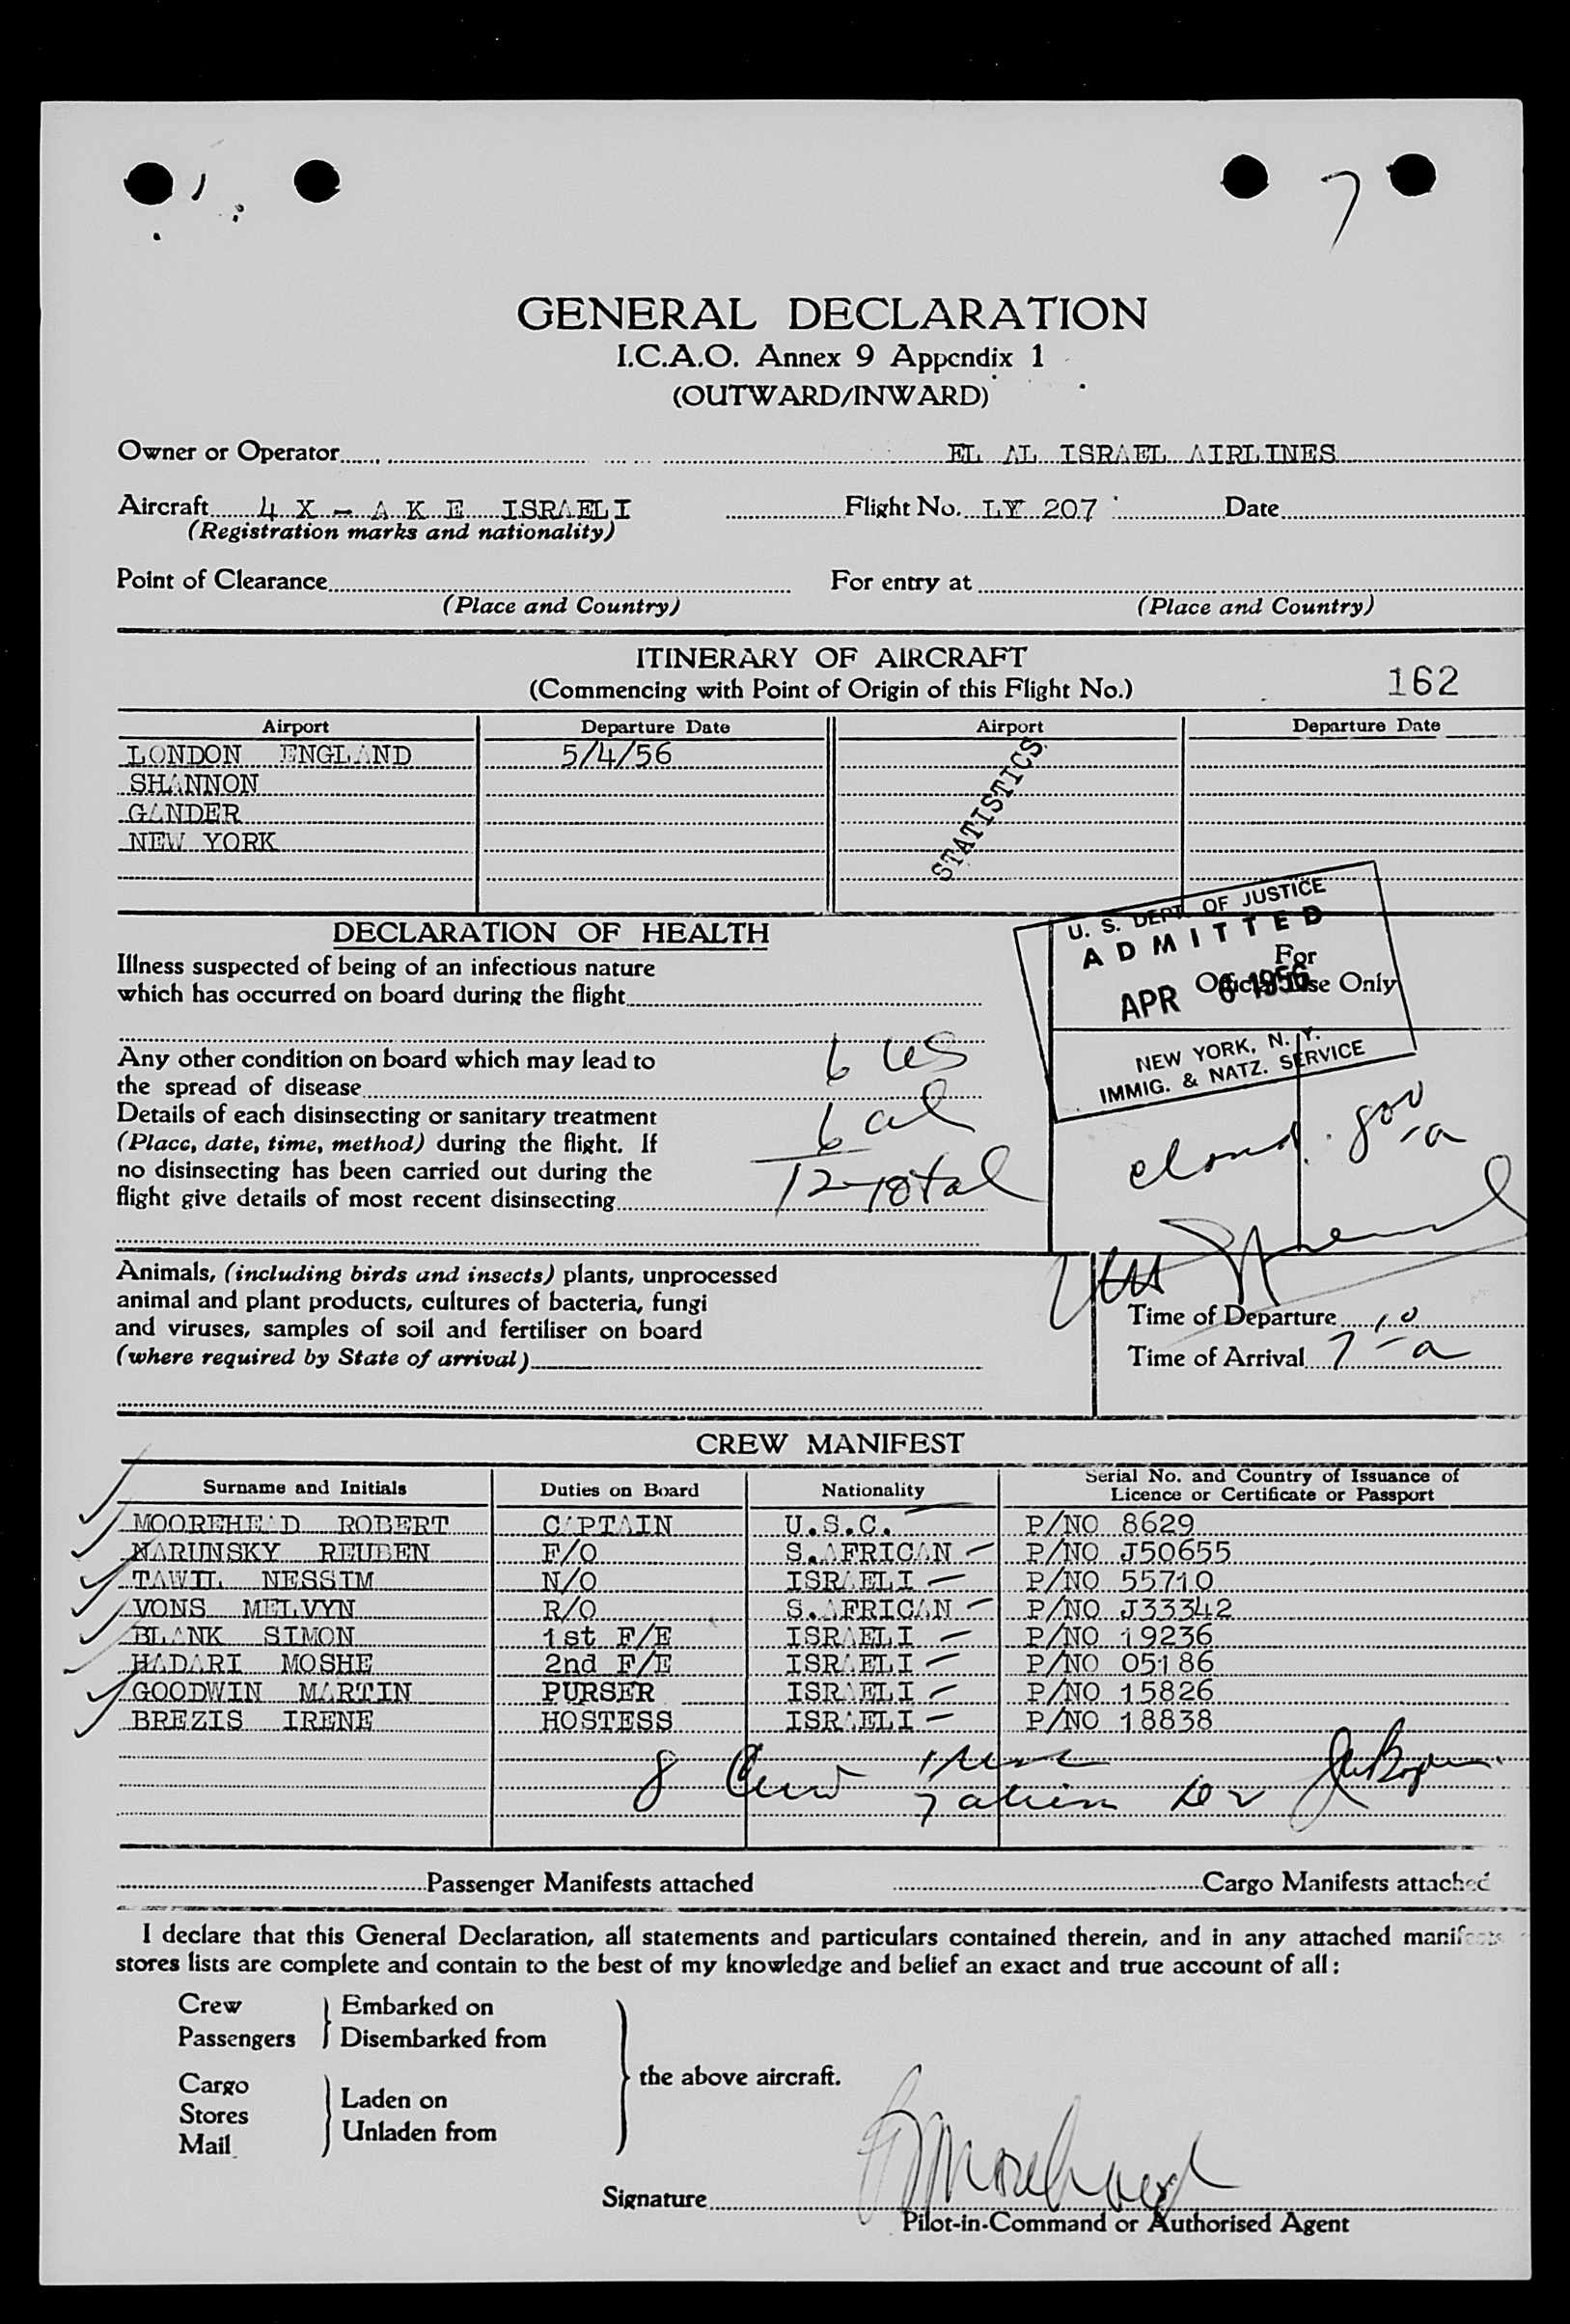 7
GENERAL DECLARATION
I.C.A.O. Annex 9 Appendix 1
(OUTWARD/INWARD)
Owner or Operator EL AL ISRAEL AIRLINES
Aircraft 4 X - A K E ISRAELI Flight No. LY 207 Date
(Registration marks and nationality)
Point of Clearance For entry at
(Place and Country) (Place and Country)
ITINERARY OF AIRCRAFT
(Commencing with Point of Origin of this Flight No.) 162
Airport Departure Date Airport Departure Date
LONDON ENGLAND 5/4/56
SHANNON
GANDER
NEW YORK
STATISTICS
U. S. DEPT. OF JUSTICE
ADMITTED
APR 6 1956
NEW YORK, N. Y.
IMMIG. & NATZ. SERVICE
For
Official Use Only
DECLARATION OF HEALTH
Illness suspected of being of an infectious nature
which has occurred on board during the flight
Any other condition on board which may lead to 6 US
the spread of disease
Details of each disinsecting or sanitary treatment 6 al
(Place, date, time, method) during the flight. If
no disinsecting has been carried out during the 12 total
flight give details of most recent disinsecting
Animals, (including birds and insects) plants, unprocessed
animal and plant products, cultures of bacteria, fungi
and viruses, samples of soil and fertiliser on board
(where required by State of arrival)
Time of Departure
Time of Arrival 7 10 a
CREW MANIFEST
Surname and Initials Duties on Board Nationality Serial No. and Country of Issuance of
Licence or Certificate or Passport
MOOREHEAD ROBERT CAPTAIN U.S.C. P/NO 8629
NARUNSKY REUBEN F/O S.AFRICAN P/NO J50655
TAWIL NESSIM N/O ISRAELI P/NO 55710
VONS MELVYN R/O S.AFRICAN P/NO J33342
BLANK SIMON 1st F/E ISRAELI P/NO 19236
HADARI MOSHE 2nd F/E ISRAELI P/NO 05186
GOODWIN MARTIN PURSER ISRAELI P/NO 15826
BREZIS IRENE HOSTESS ISRAELI P/NO 18838
8 Crew
Passenger Manifests attached Cargo Manifests attached
I declare that this General Declaration, all statements and particulars contained therein, and in any attached manifests
stores lists are complete and contain to the best of my knowledge and belief an exact and true account of all:
Crew Embarked on
Passengers Disembarked from
the above aircraft.
Cargo Laden on
Stores
Mail Unladen from
Signature
Pilot-in-Command or Authorised Agent